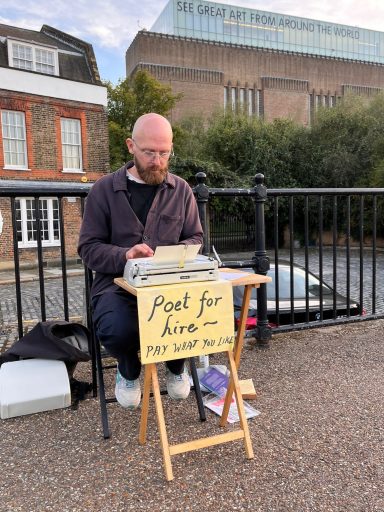 SEE GREAT ART FROM AROUND THE WORLD
Poet for
hire ~
PAY WHAT YOU LIKE